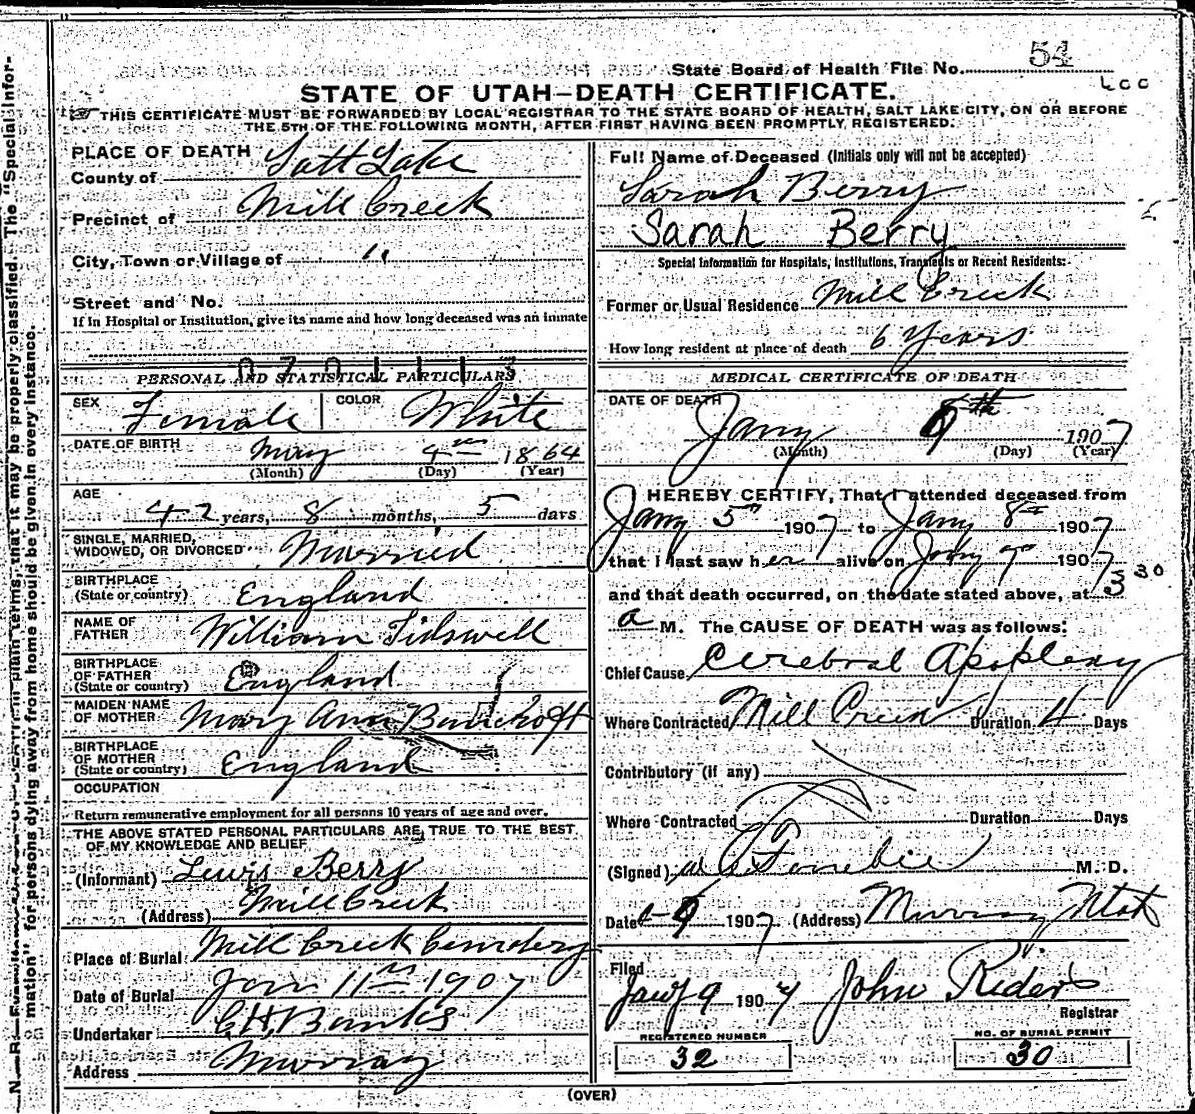 State Board of Health File No. 54
STATE OF UTAH—DEATH CERTIFICATE.
THIS CERTIFICATE MUST BE FORWARDED BY LOCAL REGISTRAR TO THE STATE BOARD OF HEALTH, SALT LAKE CITY, ON OR BEFORE
THE 5TH OF THE FOLLOWING MONTH, AFTER FIRST HAVING BEEN PROMPTLY REGISTERED.
PLACE OF DEATH
County of Salt Lake
Precinct of Mill Creek
City, Town or Village of "
Street and No.
If in Hospital or Institution, give its name and how long deceased was an inmate
PERSONAL AND STATISTICAL PARTICULARS
SEX Female COLOR White
DATE OF BIRTH May 4th 1864
(Month) (Day) (Year)
AGE
42 years, 8 months, 5 days
SINGLE, MARRIED,
WIDOWED, OR DIVORCED Married
BIRTHPLACE
(State or country) England
NAME OF
FATHER William Tidswell
BIRTHPLACE
OF FATHER
(State or country) England
MAIDEN NAME
OF MOTHER Mary Ann
BIRTHPLACE
OF MOTHER
(State or country) England
OCCUPATION
Return remunerative employment for all persons 10 years of age and over.
THE ABOVE STATED PERSONAL PARTICULARS ARE TRUE TO THE BEST
OF MY KNOWLEDGE AND BELIEF
(Informant) Lewis Berry
(Address) Mill Creek
Place of Burial Mill Creek Cemetery
Date of Burial Jan 11th 1907
Undertaker G.H. Banks
Address Murray
Full Name of Deceased (Initials only will not be accepted)
Sarah Berry
Sarah Berry
Special Information for Hospitals, Institutions, Transients or Recent Residents:
Former or Usual Residence Mill Creek
How long resident at place of death 6 Years
MEDICAL CERTIFICATE OF DEATH
DATE OF DEATH
Jany 9th 1907
(Month) (Day) (Year)
I HEREBY CERTIFY, That I attended deceased from
Jany 5th 1907 to Jany 8th 1907
that I last saw her alive on Jany 1907
and that death occurred, on the date stated above, at 3 30
a M. The CAUSE OF DEATH was as follows:
Chief Cause Cerebral Apoplexy
Where Contracted Mill Creek Duration 4 Days
Contributory (if any)
Where Contracted Duration Days
(Signed) M. D.
Date 1-9 1907 (Address) Murray Utah
Filed
Jany 9 1907 John Rider
Registrar
REGISTERED NUMBER
32
NO. OF BURIAL PERMIT
30
(OVER)
mation" for persons dying away from home should be given in every instance.